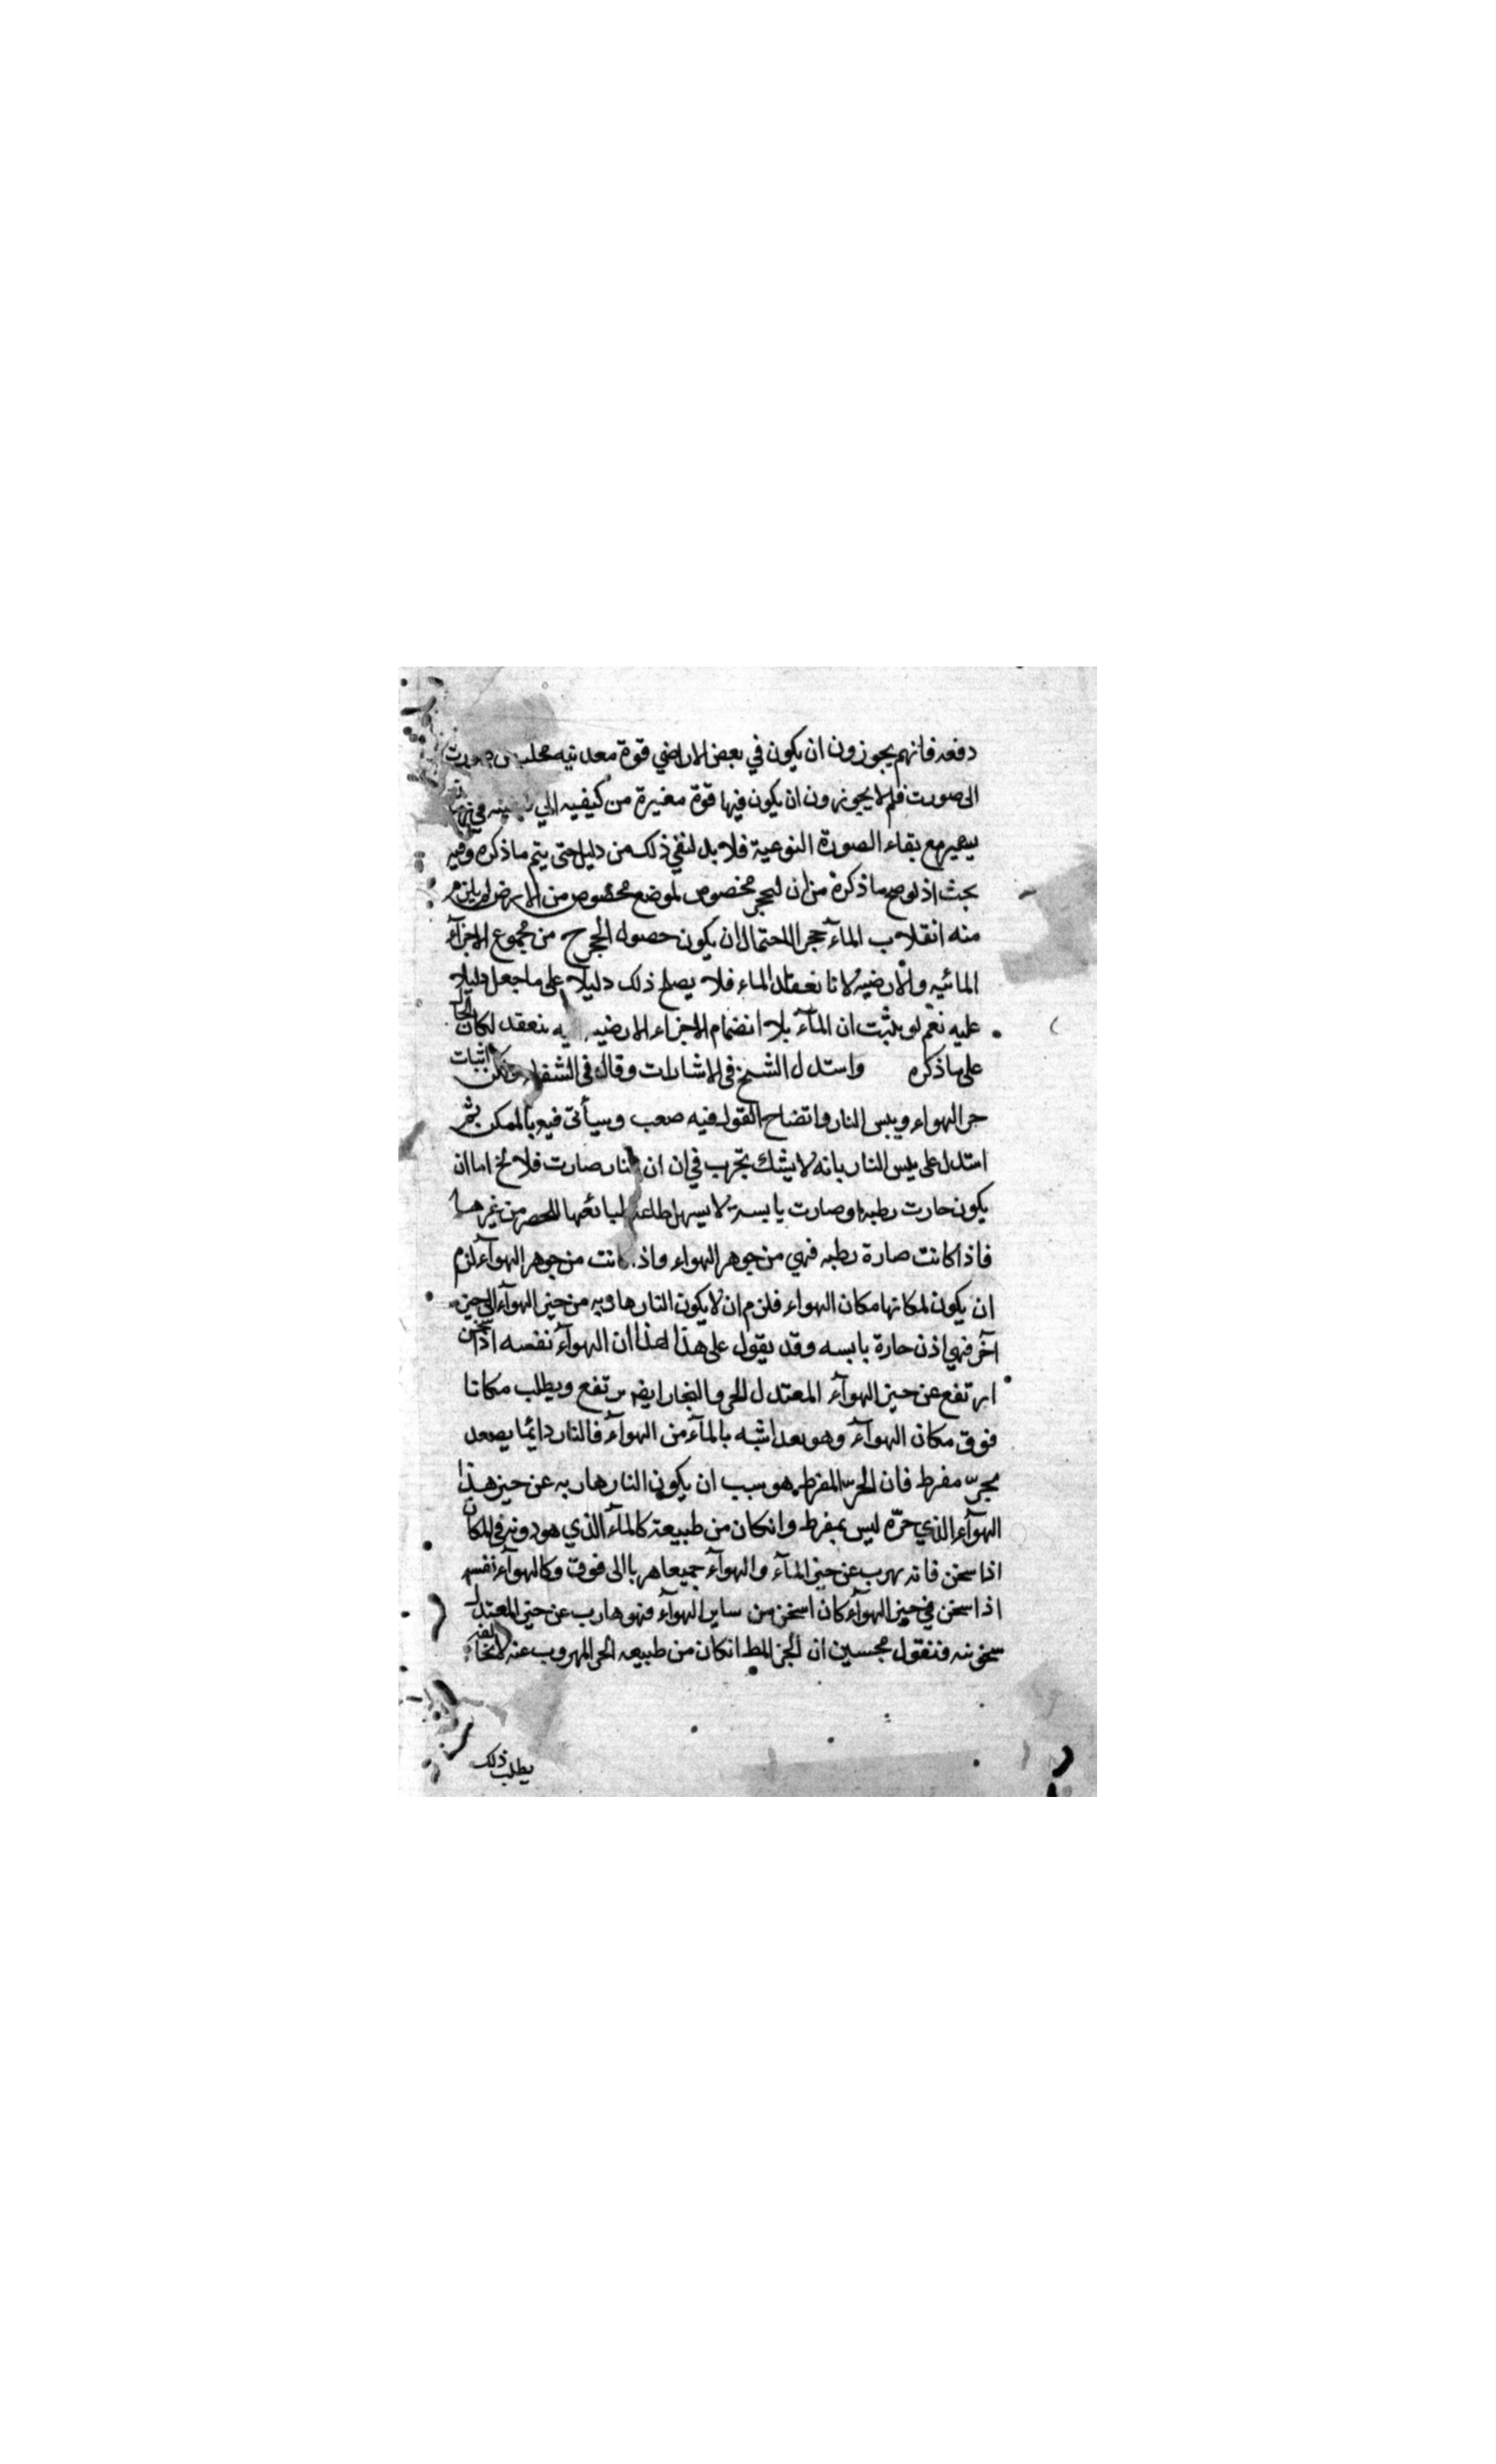 دفعه فانهم يجوزون ان يكون في بعض الاراضي قوة معدنيه
الى صورت فلم لا يجوزون ان يكون فيها قوة مغيرة من كيفيه الي
بقاء الصورة النوعية فلا بد لنفي ذلك من دليل حتى يتم ما ذكره وفيه
بحث اذ لو صح ما ذكرة من ان لحجر مخصوص لموضع مخصوص من الارض لم يلزم
منه انقلاب المآء حجرا لاحتمال ان يكون حصول الحجر ح من مجموع الاجزآء
المائيه والارضيه لا نا نعقاد الماء فلا يصلح ذلك دليلا على ما جعل دليلا
عليه نعم لو يثبت ان المآء بلا انضمام الاجزاء الارضيه ينعقد لكان
على ما ذكره واستدل الشيخ في الاشارات وقال في الشفاء اثبات
حر الهواء ويبس النار واتضاح القول فيه صعب وسيأتي فيه بالممكن ثم
استدل على يبس النار بانه لا يشك تجرب في ان ان النار صارت فلا يخ اما ان
يكون حارت رطبه او صارت يابسة لا يسهل طاعة للحصر من غيرها
فاذا كانت صارة رطبه فهي من جوهر الهواء واذا كانت من جوهر الهوآء لزم
ان يكون لمكانها مكان الهواء فلزم ان لا يكون النار هاربه من حيز الهوآء الى حيز
آخر فهي اذن حارة يابسه وقد يقول على هذا ان الهوآء نفسه اذا سخن
ارتفع عن حيز الهوآء المعتدل الحر والبخار ايضا يرتفع ويطلب مكانا
فوق مكان الهوآء وهو بعد اشبه بالمآء من الهوآء فالنار دائما يصعد
بحرّ مفرط فان الحرّ المفرط هو سبب ان يكون النار هاربه عن حيز هذا
الهوآء الذي حرّه ليس بمفرط وانكان من طبيعة كالمآء الذي هو دونه في المكان
اذا سخن فانه يهرب عن حيز المآء والهوآء جميعا هربا الى فوق وكالهوآء نفسه
اذا سخن في حيز الهوآء كان اسخن من ساير الهوآء فهو هارب عن حيز المعتدل
سخونته فنقول مجيبين ان الحيز انكان من طبيعه الحر المهروب عنه لا يخالفه
يطلب ذلك